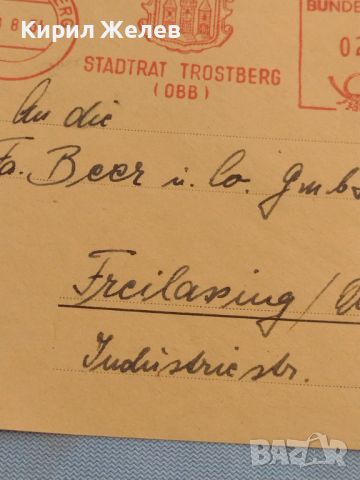 Кирил Желев
BUNDE
STADTRAT TROSTBERG
(OBB)
An die
Fa. Beer u. Co. Gmb
Freilassing /
Industriestr.
BAZAR